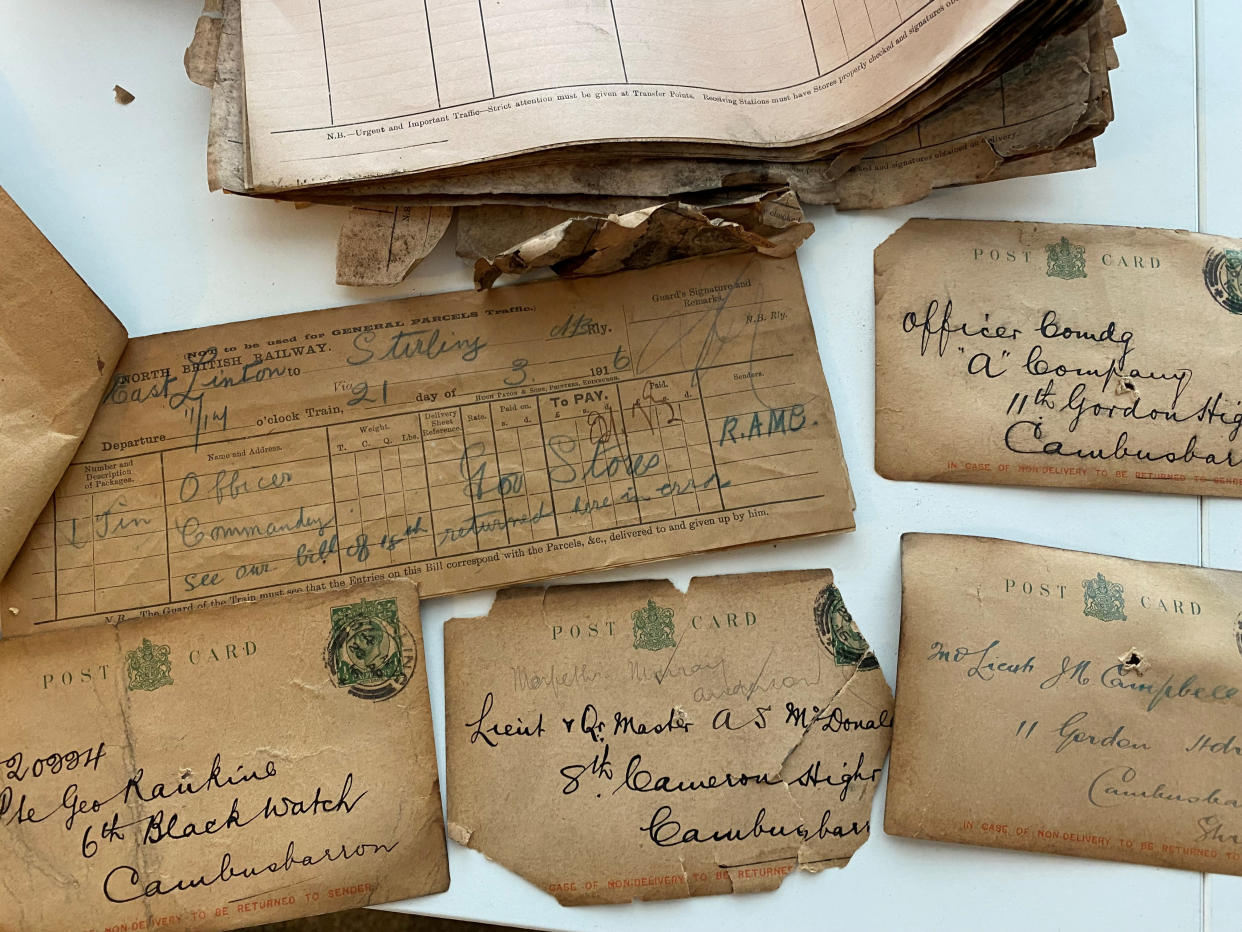 N.B.—Urgent and Important Traffic—Strict attention must be given at Transfer Points. Receiving Stations must have Stores properly checked and signatures
checked and signatures obtained on delivery.
(NOT to be used for GENERAL PARCELS Traffic.)
NORTH BRITISH RAILWAY.
East Linton to Stirling NB Rly.
Via
Departure 1/14 o'clock Train, 21 day of 3 1916
HUGH PATON & SONS, PRINTERS, EDINBURGH.
Guard's Signature and Remarks.
N.B. Rly.
Number and Description of Packages.
Name and Address.
Weight.
T. C. Q. Lbs.
Delivery Sheet Reference.
Rate.
Paid on.
s. d.
To PAY.
£ s. d.
Paid.
£ s. d.
Senders.
1 Tin
Officer
Commandg
Gov Stores
R.A.M.C.
see our bill of 18th returned here in error
N.B.—The Guard of the Train must see that the Entries on this Bill correspond with the Parcels, &c., delivered to and given up by him.
POST CARD
Officer Comdg
"A" Company
11th Gordon Hig
Cambusbarr
IN CASE OF NON-DELIVERY TO BE RETURNED TO SENDER
POST CARD
20994
Pte Geo Rankine
6th Black Watch
Cambusbarron
NON-DELIVERY TO BE RETURNED TO SENDER
POST CARD
Murray
anderson
Lieut & Qr Master A S McDonal
8th Cameron Highr
Cambusbarr
CASE OF NON-DELIVERY TO BE RETURNE
POST CARD
2nd Lieut J M Campbell
11 Gordon Hdr
Cambusba
IN CASE OF NON-DELIVERY TO BE RETURNED TO